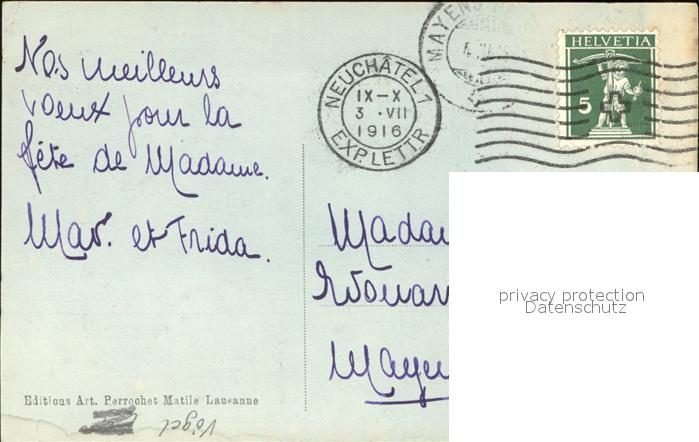 Nos meilleurs
vœux pour la
fête de Madame.
Mad. et Frida.
NEUCHÂTEL 1
IX-X
3 . VII
1916
EXP. LETTR
MAYENS
HELVETIA
5
Madam
Edouar
Mayen
privacy protection
Datenschutz
Editions Art. Perrochet Matile Lausanne
Vögel